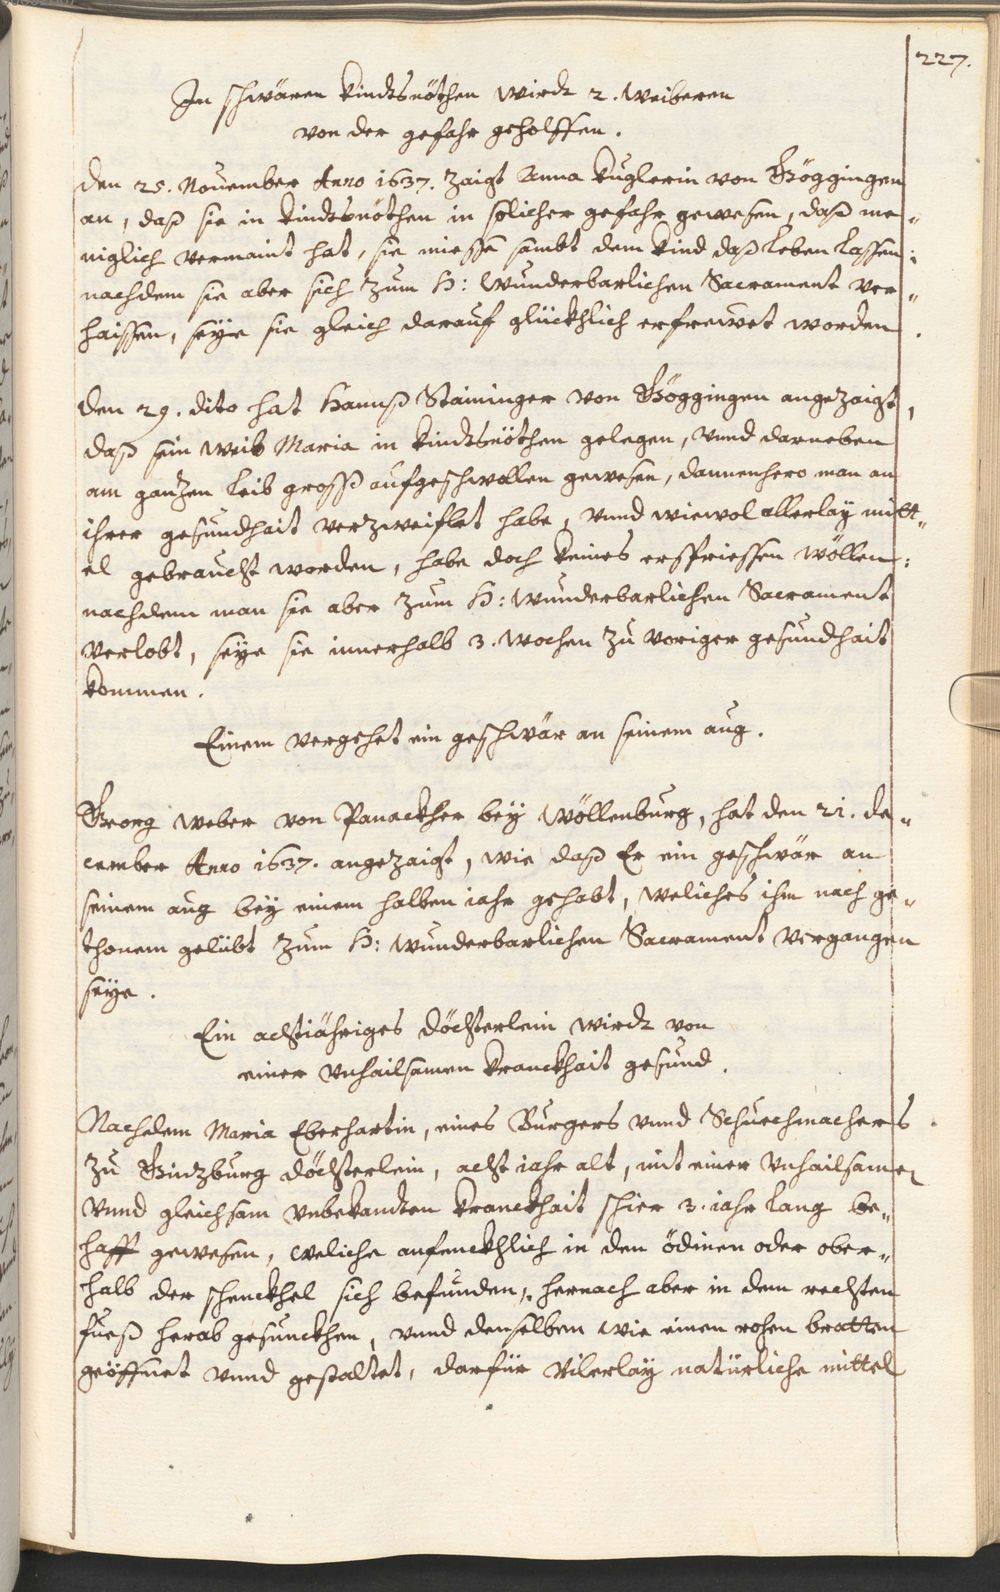 227.
In schwären kindtsnöthen wirdt 2. weiberen
von der gefahr geholffen.
Den 25. Nouember Anno 1637. zaigt Anna Kuglerin von Göggingen
an, daß sie in kindtsnöthen in solicher gefahr gewesen, daß me„
niglich vermaint hat, sie miesse sambt dem kind daß leben lassen:
nachdem sie aber sich zum H: Wunderbarlichen Sacrament ver„
haissen, seye sie gleich darauf glückhlich erfrewet worden.
Den 29. dito hat Hannß Staininger von Göggingen angezaigt,
daß sein weib Maria in kindtsnöthen gelegen, vnnd darneben
am ganzen leib grosß aufgeschwollen gewesen, dannenhero man an
ihrer gesundhait verzweiflet habe, vnnd wiewol allerlay mitt„
el gebraucht worden, habe doch keines ersprießen wöllen:
nachdem man sie aber zum H: Wunderbarlichen Sacrament
verlobt, seye sie innerhalb 3. wochen zu voriger gesundhait
kommen.
Einem vergehet ein geschwär an seinem aug.
Georg Weber von Panackher bey Wöllenburg, hat den 21. de„
cember Anno 1637. angezaigt, wie daß Er ein geschwär an
seinem aug bey einem halben iahr gehabt, weliches ihm nach ge„
thonem gelübt zum H: Wunderbarlichen Sacrament vergangen
seye.
Ein achtiähriges döchterlein wirdt von
einer vnhailsamen kranckhait gesund.
Nachdem Maria Eberhartin, eines Burgers vnnd Schuechmachers
zu Ginzburg döchterlein, acht iahr alt, mit einer vnhailsamen
vnnd gleichsam vnbekandten kranckhait schier 3. iahr lang be„
hafft gewesen, weliche anfenckhlich in den ödinen oder ober„
halb der schenckhel sich befunden, hernach aber in dem rechten
fueß herab gesunckhen, vnnd denselben wie einen rohen bratten
geöffnet vnnd gestaltet, darfür vilerlay natürliche mittel